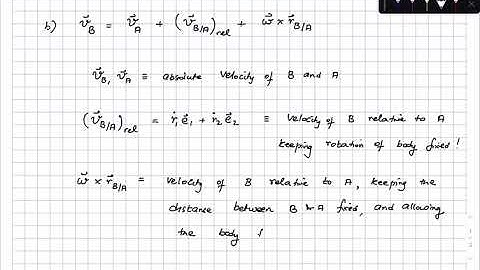 b) v⃗_B = v⃗_A + (v⃗_B/A)_rel + ω⃗ × r⃗_B/A
v⃗_B, v⃗_A ≡ absolute velocity of B and A
(v⃗_B/A)_rel = ṙ₁e⃗₁ + ṙ₂e⃗₂ ≡ velocity of B relative to A
keeping rotation of body fixed!
ω⃗ × r⃗_B/A = velocity of B relative to A, keeping the
distance between B & A fixed, and allowing
the body